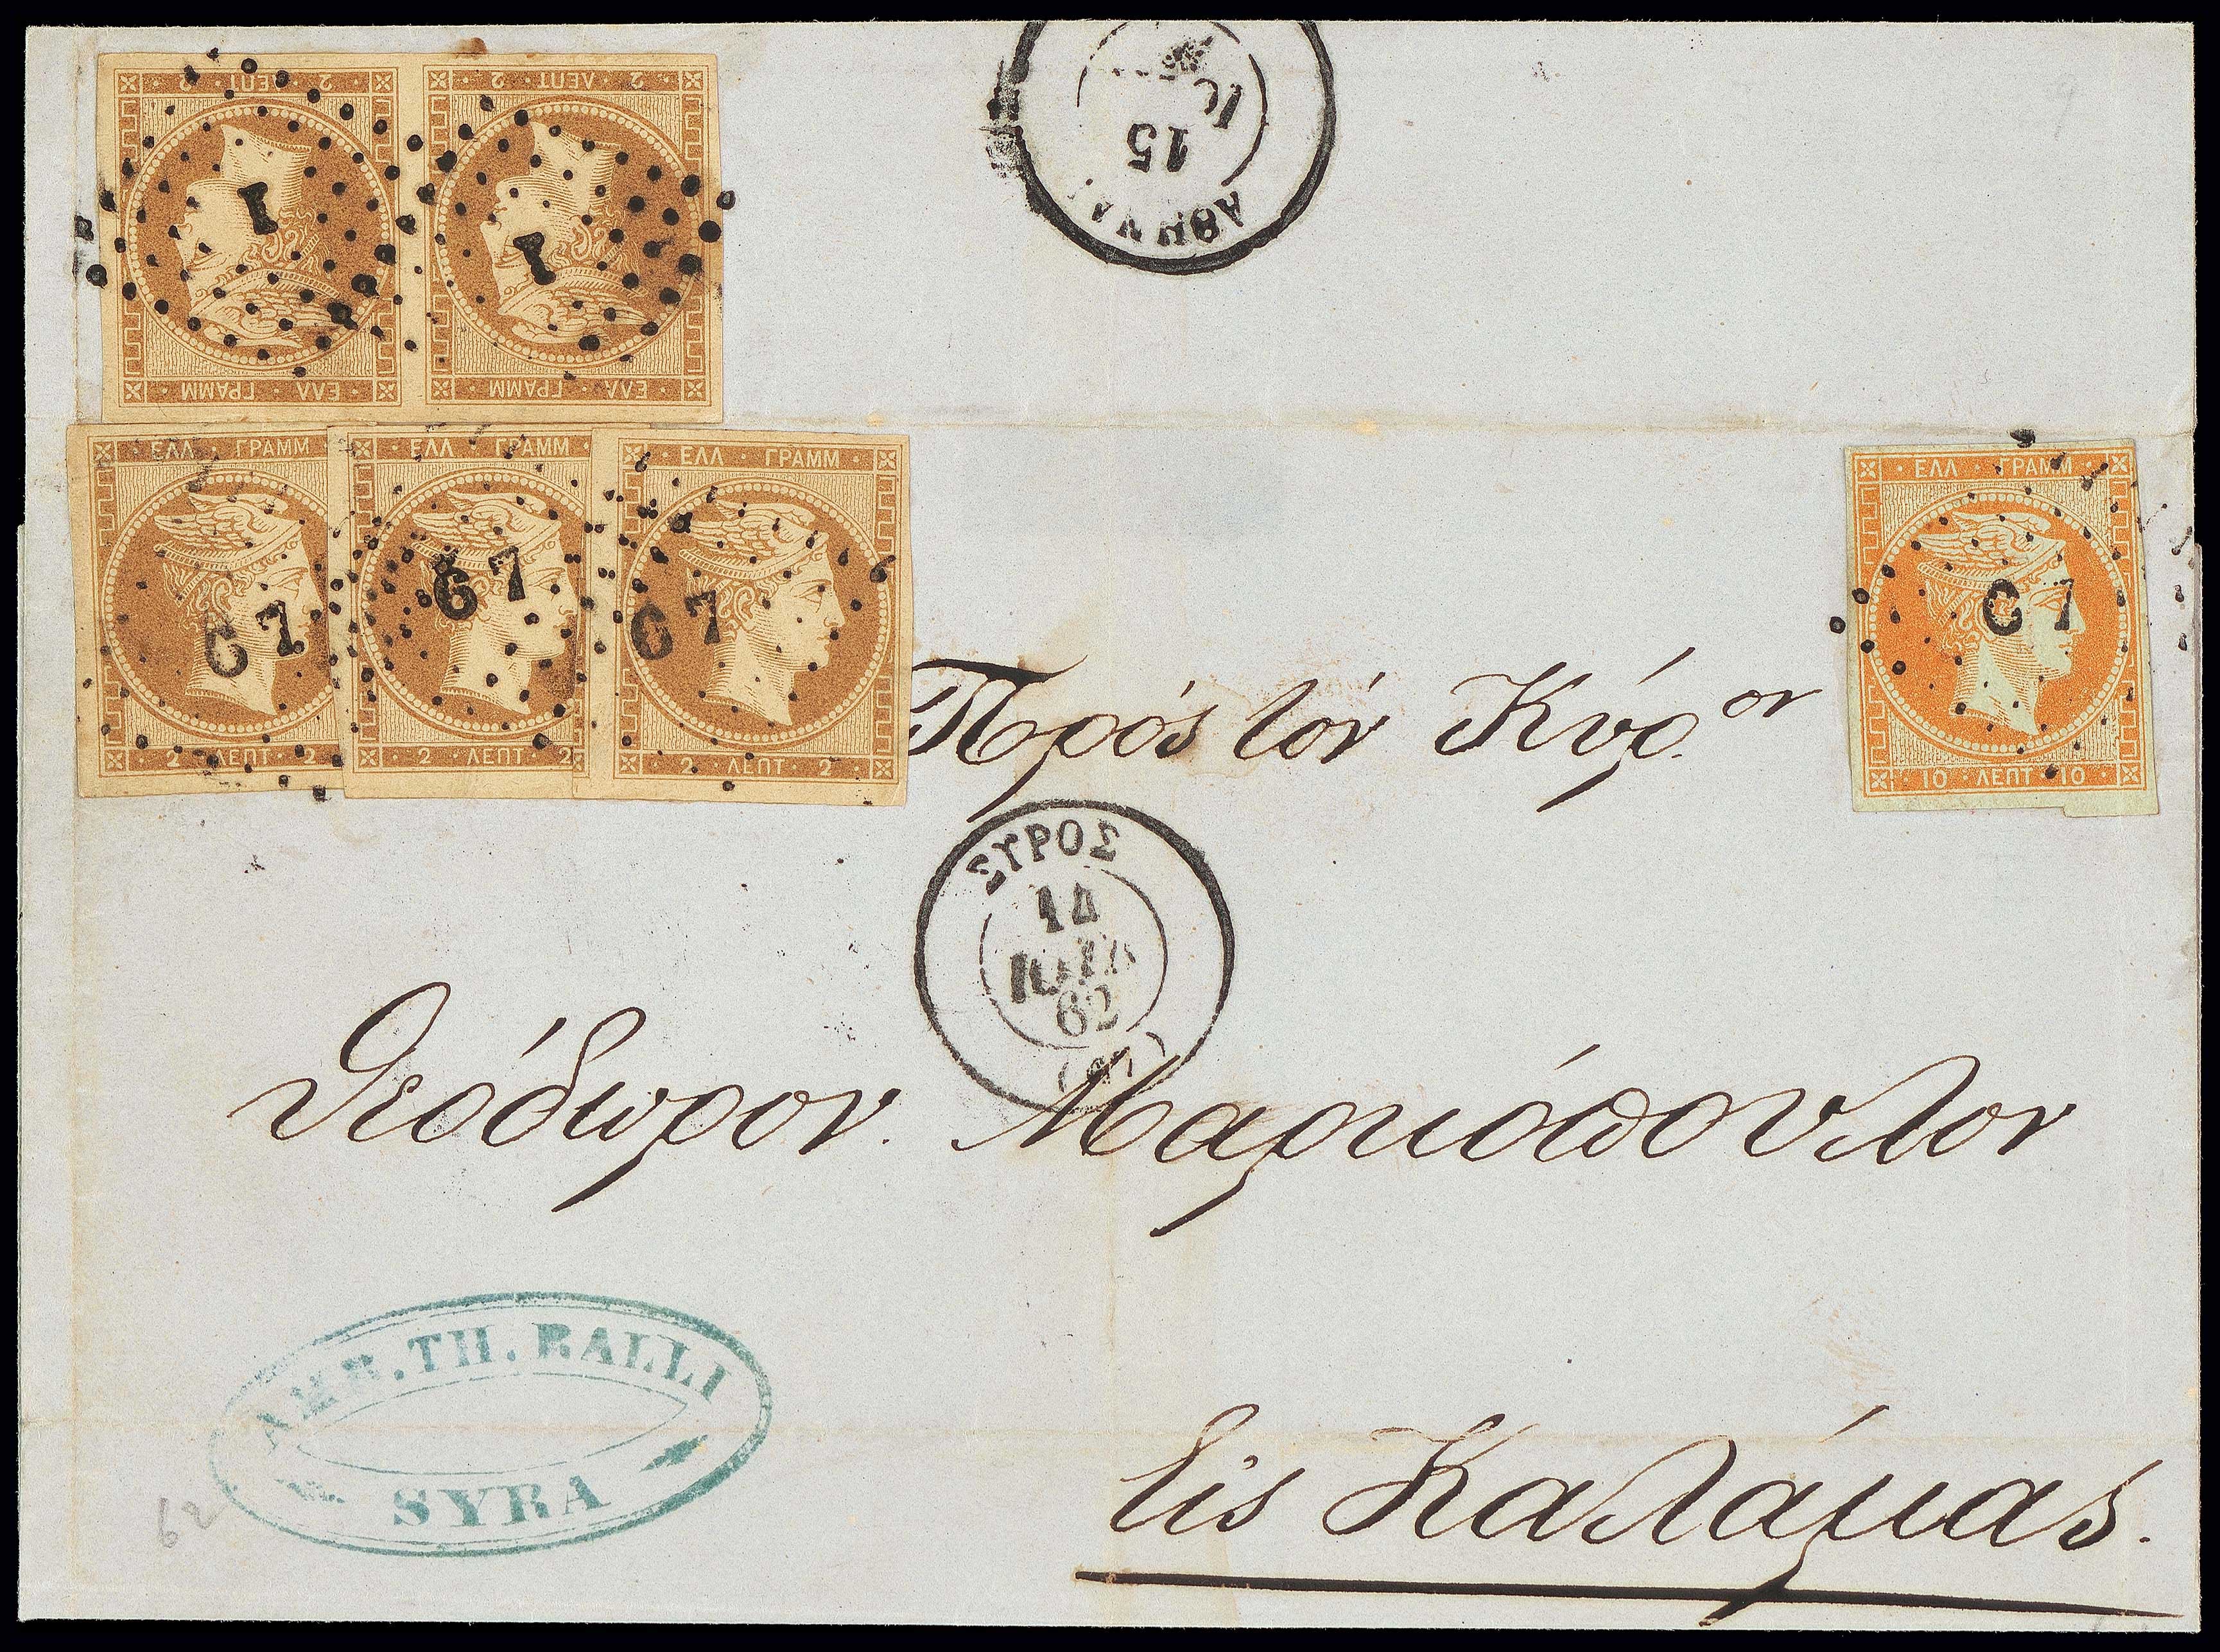 2 · ΛΕΠΤ · 2
2 · ΛΕΠΤ · 2
1
1
ΕΛΛ · ΓΡΑΜΜ
ΕΛΛ · ΓΡΑΜΜ
15
ΑΘΗΝΑΙ
ΕΛΛ · ΓΡΑΜΜ
ΕΛΛ · ΓΡΑΜΜ
ΕΛΛ · ΓΡΑΜΜ
ΕΛΛ · ΓΡΑΜΜ
67
67
67
67
2 · ΛΕΠΤ · 2
2 · ΛΕΠΤ · 2
2 · ΛΕΠΤ · 2
10 · ΛΕΠΤ · 10
Πρός τόν Κύρ.ον
ΣΥΡΟΣ
14
ΙΟΥΛ
62
(67)
Θεόδωρον Μαρκόπουλον
AMB. TH. RALLI
SYRA
62
Εἰς Καλάμας.